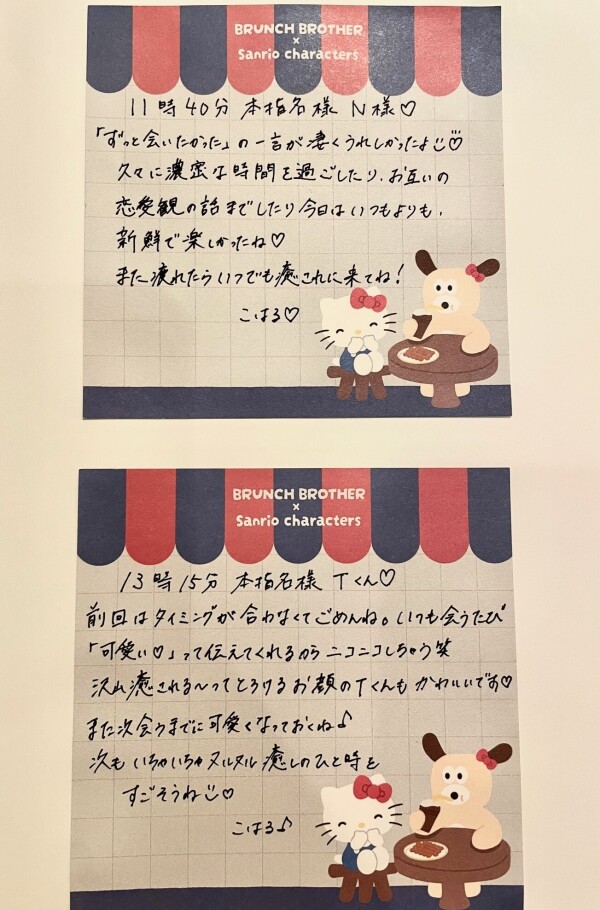 BRUNCH BROTHER
×
Sanrio characters
11時40分 本指名様 N様♡
「ずっと会いたかった」の一言が凄くうれしかったよ☺♡
久々に濃密な時間を過ごしたり、お互いの
恋愛観の話までしたり今日はいつもよりも、
新鮮で楽しかったね♡
また疲れたらいつでも癒されに来てね!
こはる♡
BRUNCH BROTHER
×
Sanrio characters
13時15分 本指名様 Tくん♡
前回はタイミングが合わなくてごめんね。いつも会うたび
「可愛い♡」って伝えてくれるからニコニコしちゃう笑
沢山癒される〜ってとろけるお顔のTくんもかわいいです♡
また次会うまでに可愛くなっておくね♪
次もいちゃいちゃヌルヌル癒しのひと時を
すごそうね☺♡
こはる♪